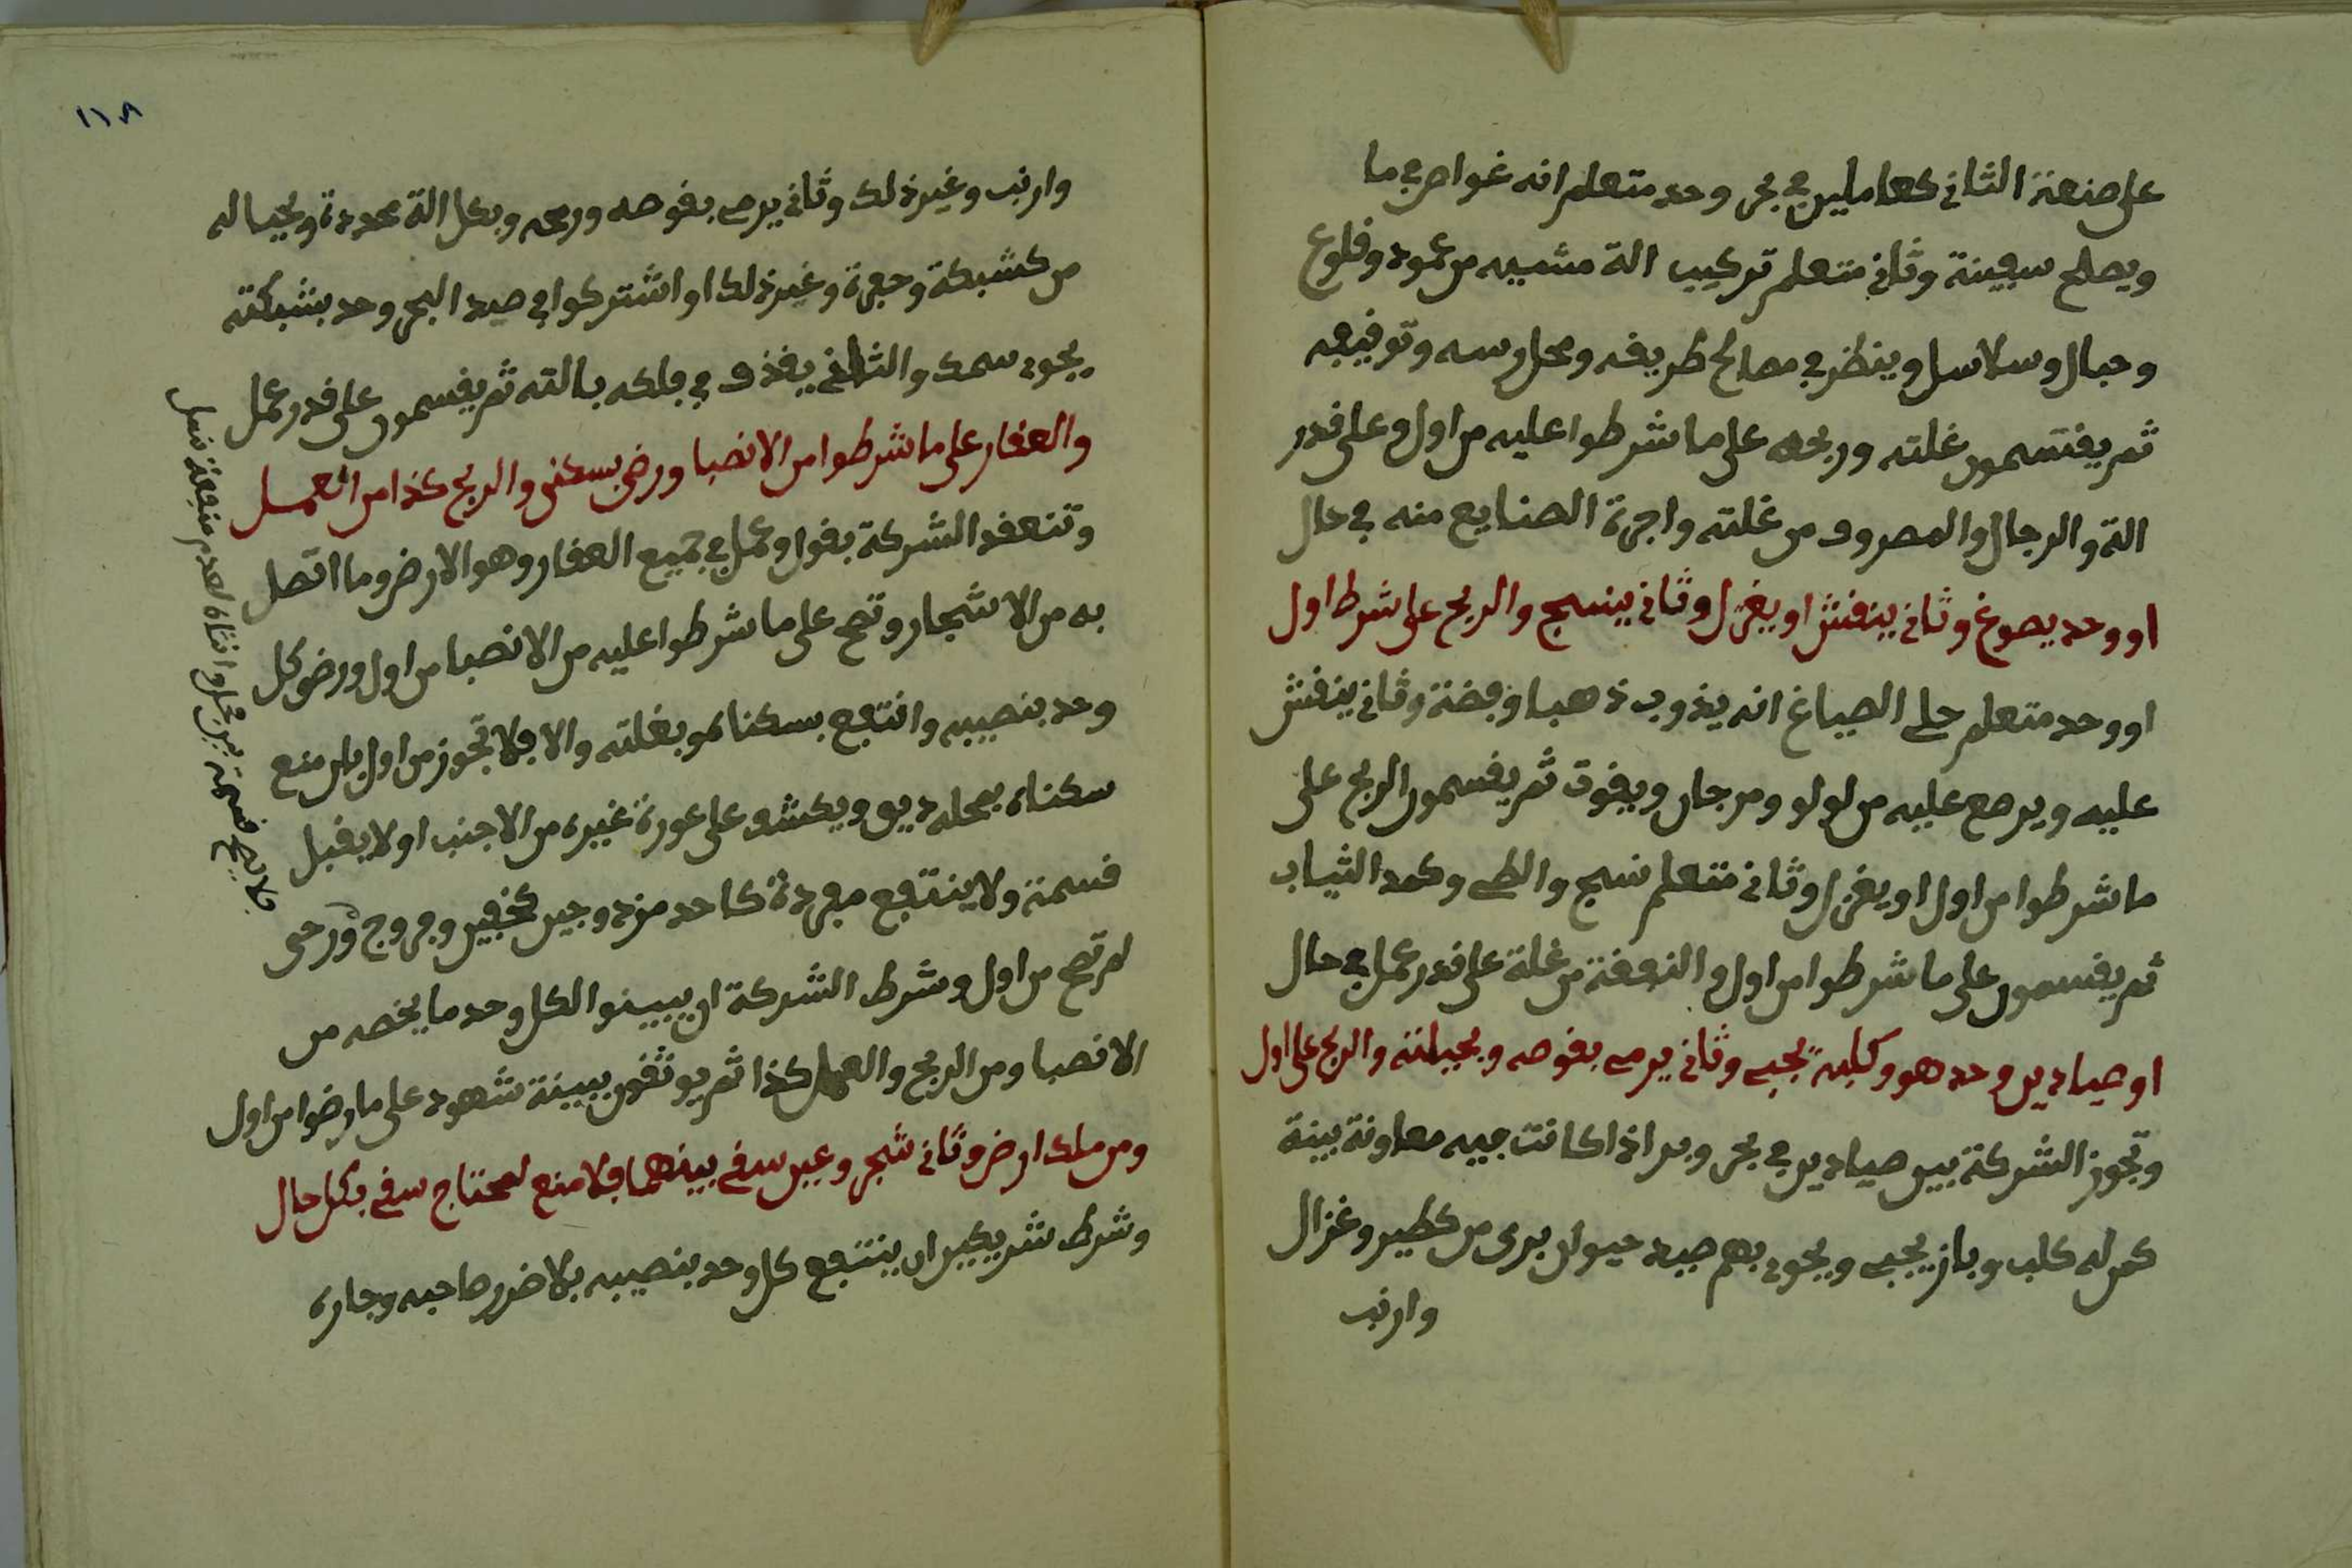 على صنعة الثاني كعاملين في بحر وحد متعلم انه غواص في ما
ويصلح سفينة وثاني متعلم تركيب الة مشيه من عمود وقلوع
وحبال وسلاسل وينظر في مصالح طريقه ومحل رسه وتوقيفه
ثم يقتسمون غلته وربحه على ما شرطوا عليه من اول وعلى قدر
الة والرجال والمصروف من غلته واجرة الصنايع منه في حال
او وحد يصوغ وثاني ينقش او يغزل وثاني ينسج والربح على شرط اول
او وحد متعلم حلي الصياغ انه يذوب ذهبا وفضة وثاني ينقش
عليه ويرصع عليه من لولو ومرجان وياقوت ثم يقسمون الربح على
ما شرطوا من اول او يغزل وثاني متعلم نسج والطي وكمد الثياب
ثم يقسمون على ما شرطوا من اول والنفقة من غلة على قدر عمل في حال
او صيادين وحد هو وكلبه يجي وثاني يرمي بقوصه وبحيلته والربح على اول
وتجوز الشركة بين صيادين في بحر وبر اذا كانت فيه معاونة بينة
كمن له كلب وباز يجي ويحود بهم صيد حيوان بري من كطير وغزال
وارنب
١١٨
وارنب وغير ذلك وثاني يرمي بقوصه ورمحه وبكل الة محددة وبحيا له
من كشبكة وحفرة وغير ذلك او اشتركوا في صيد البحر وحد بشبكته
يحود سمك والثاني يقذف في فلكه بالته ثم يقسمون على قدر عمل
والعقار على ما شرطوا من الانصبا ورضى بسكنى والربح كذا من العمل
وتنعقد الشركة بقول وعمل في جميع العقار وهو الارض وما اتصل
به من الاشجار وتصح على ما شرطوا عليه من الانصبا من اول ورضى كل
وحد بنصيبه وانتفع بسكناه وبغلته والا فلا تجوز من اول بان منع
سكناه بمحله ديق ويكشف على عورة غيره من الاجنب او لا يقبل
قسمة ولا ينتفع مفردة كاحد مزدوجين كخفين وفروج ورحى
لم تصح من اول وشرط الشركة ان يبينوا الكل وحد ما يخصه من
الانصبا ومن الربح والعمل كذا ثم يوثقون ببينة شهود على ما رضوا من اول
ومن ملك ارض وثاني شجر وعين سقي بينهما فلا منع لمحتاج سقي بكل حال
وشرط شريكين ان ينتفع كل وحد بنصيبه بلا ضرر صاحبه وجاره
فلا يصح قسمة بين محل وانثاه لعدم منفعة نسل